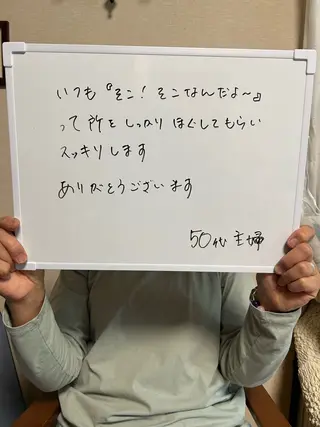 いつも『そこ！そこなんだよ～』
って所をしっかりほぐしてもらい
スッキリします
ありがとうございます
50代 主婦